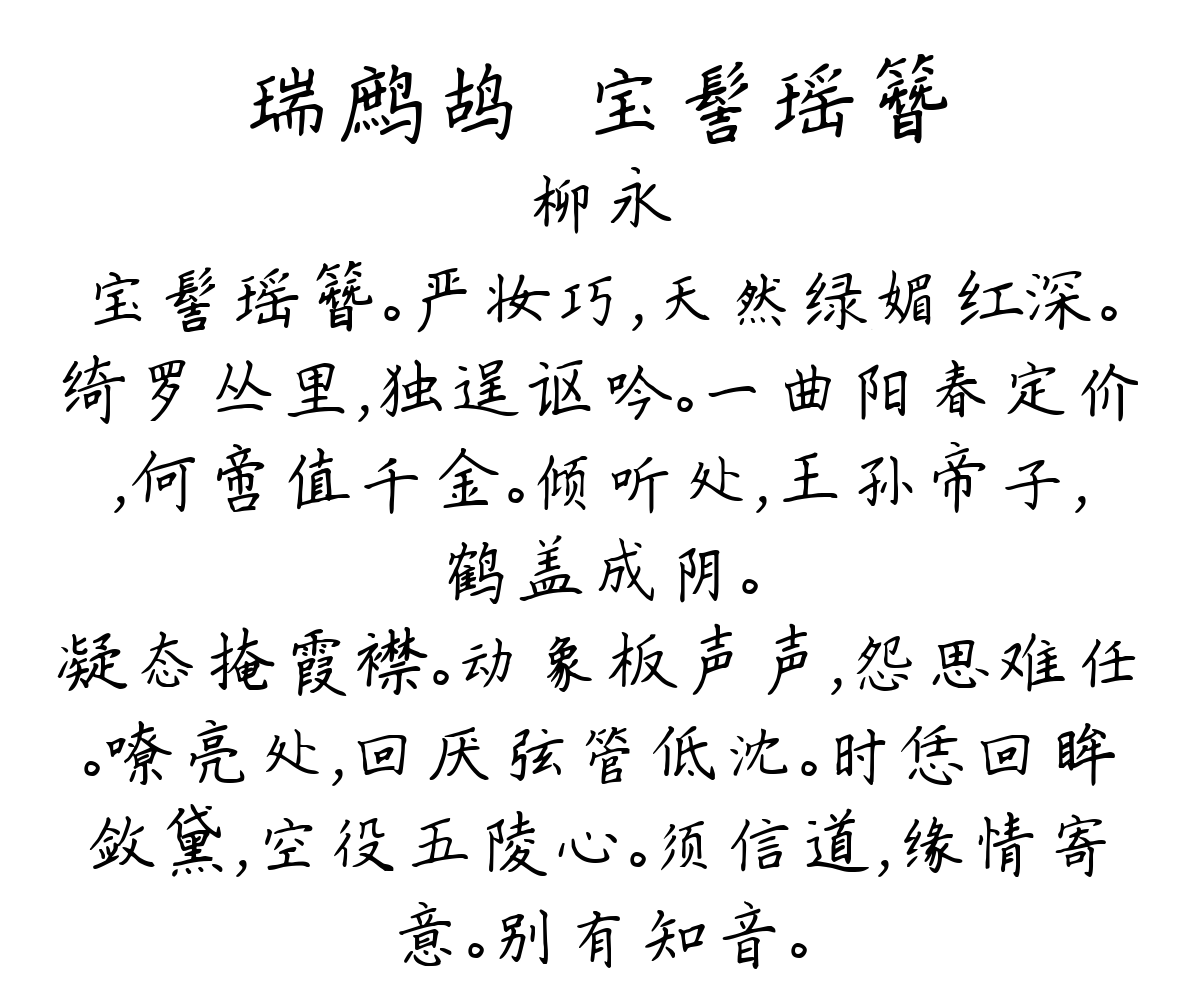 瑞鹧鸪 宝髻瑶簪
柳永
宝髻瑶簪。严妆巧,天然绿媚红深。
绮罗丛里,独逞讴吟。一曲阳春定价
,何啻值千金。倾听处,王孙帝子,
鹤盖成阴。
凝态掩霞襟。动象板声声,怨思难任
。嘹亮处,回厌弦管低沈。时恁回眸
敛黛,空役五陵心。须信道,缘情寄
意。别有知音。